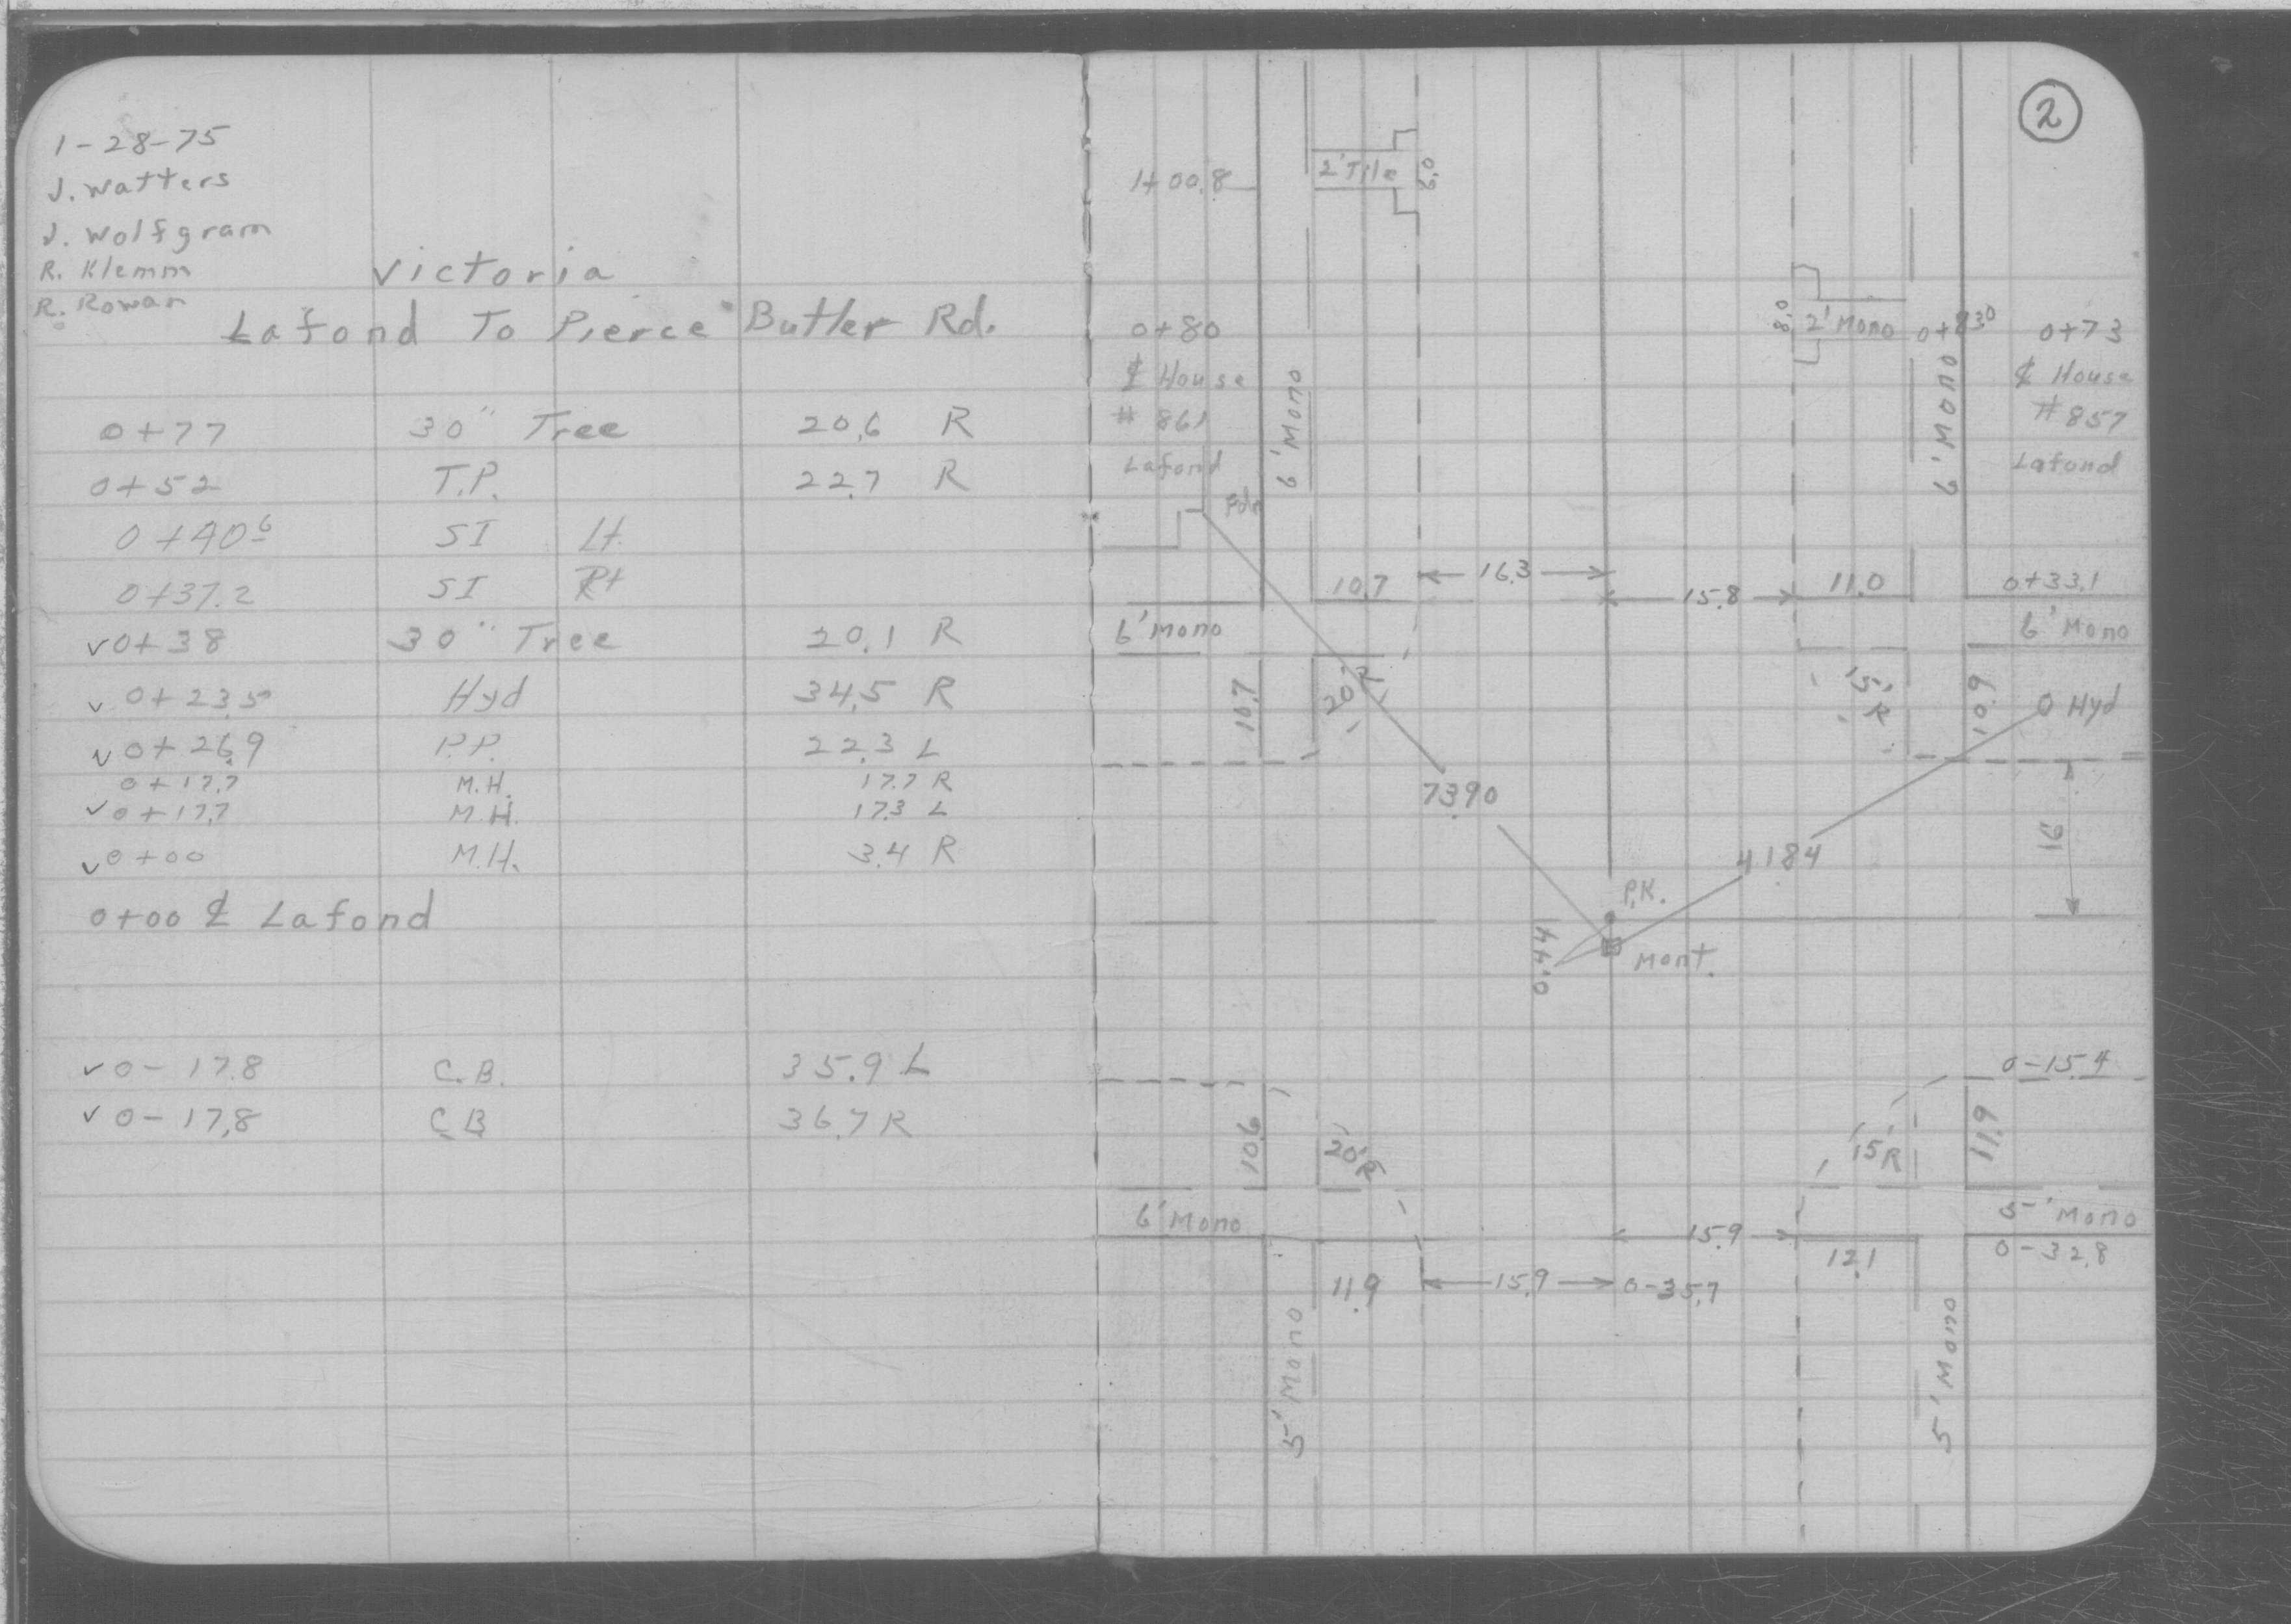 1-28-75
J. Watters
J. Wolfgram
R. Klemm
R. Rowan
Victoria
Lafond To Pierce Butler Rd.
0+77 30" Tree 20.6 R
0+52 T.P. 22.7 R
0+40⁶ SI Lt.
0+37.2 SI Rt
✓0+38 30" Tree 20.1 R
✓0+23.5 Hyd 34.5 R
✓0+26.9 P.P. 22.3 L
0+17.7 M.H. 17.7 R
✓0+17.7 M.H. 17.3 L
✓0+00 M.H. 3.4 R
0+00 ℄ Lafond
✓0-17.8 C.B. 35.9 L
✓0-17.8 C.B. 36.7 R
2
1+00.8 2' Tile
8.0 2' Mono 0+83⁰
0+80
℄ House
# 861
Lafond
6' Mono
6' Mono
0+73
℄ House
# 857
Lafond
Pole
10.7 16.3 15.8 11.0 0+33.1
6' Mono
6' Mono
10.7 20' R 15' R 10.9 Hyd
73.90
41.84
16
P.K.
0.44
Mont.
0-15.4
10.6 20' R 15' R 11.9
6' Mono
5' Mono
15.9
12.1
0-32.8
11.9 15.9 0-35.7
5' Mono
5' Mono